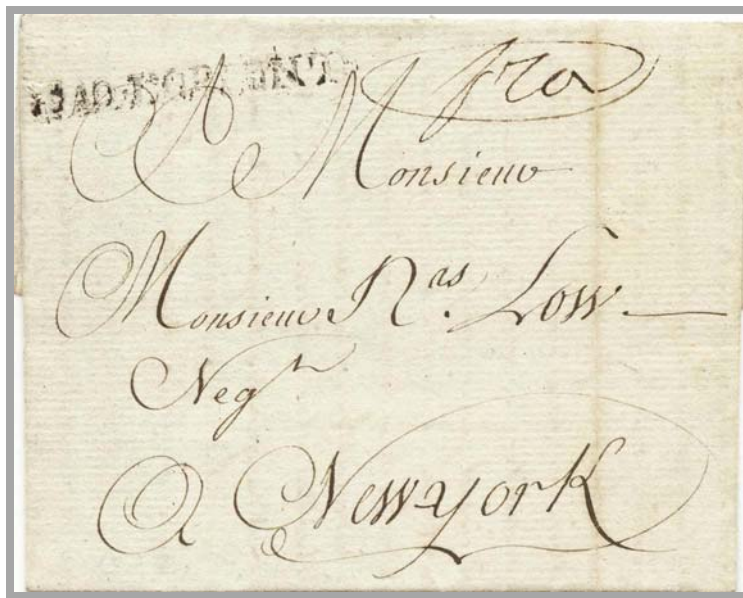 fra
A Monsieur
Monsieur Nas. Low.
Negt
A New york